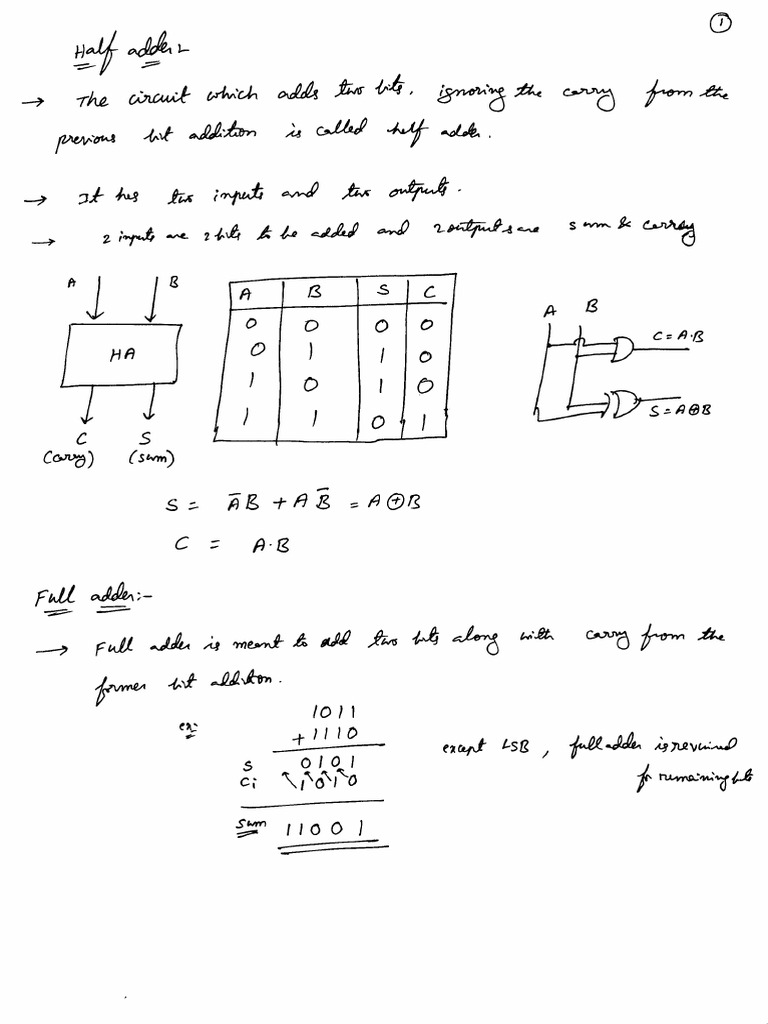 1
Half adder :-
→ The circuit which adds two bits, ignoring the carry from the
previous bit addition is called half adder.
→ It has two inputs and two outputs.
→ 2 inputs are 2 bits to be added and 2 outputs are sum & carray
A B
HA
C S
(carry) (sum)
A B S C
0 0 0 0
0 1 1 0
1 0 1 0
1 1 0 1
A B
C = A·B
S = A⊕B
S = A̅B + AB̅ = A⊕B
C = A·B
Full adder:-
→ Full adder is meant to add two bits along with carry from the
former bit addition.
ex:
1011
+1110
S 0101
Ci 1010
Sum 11001
except LSB, full adder is required
for remaining bits